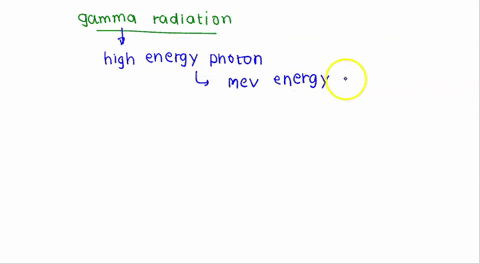 gamma radiation
high energy photon
mev energy